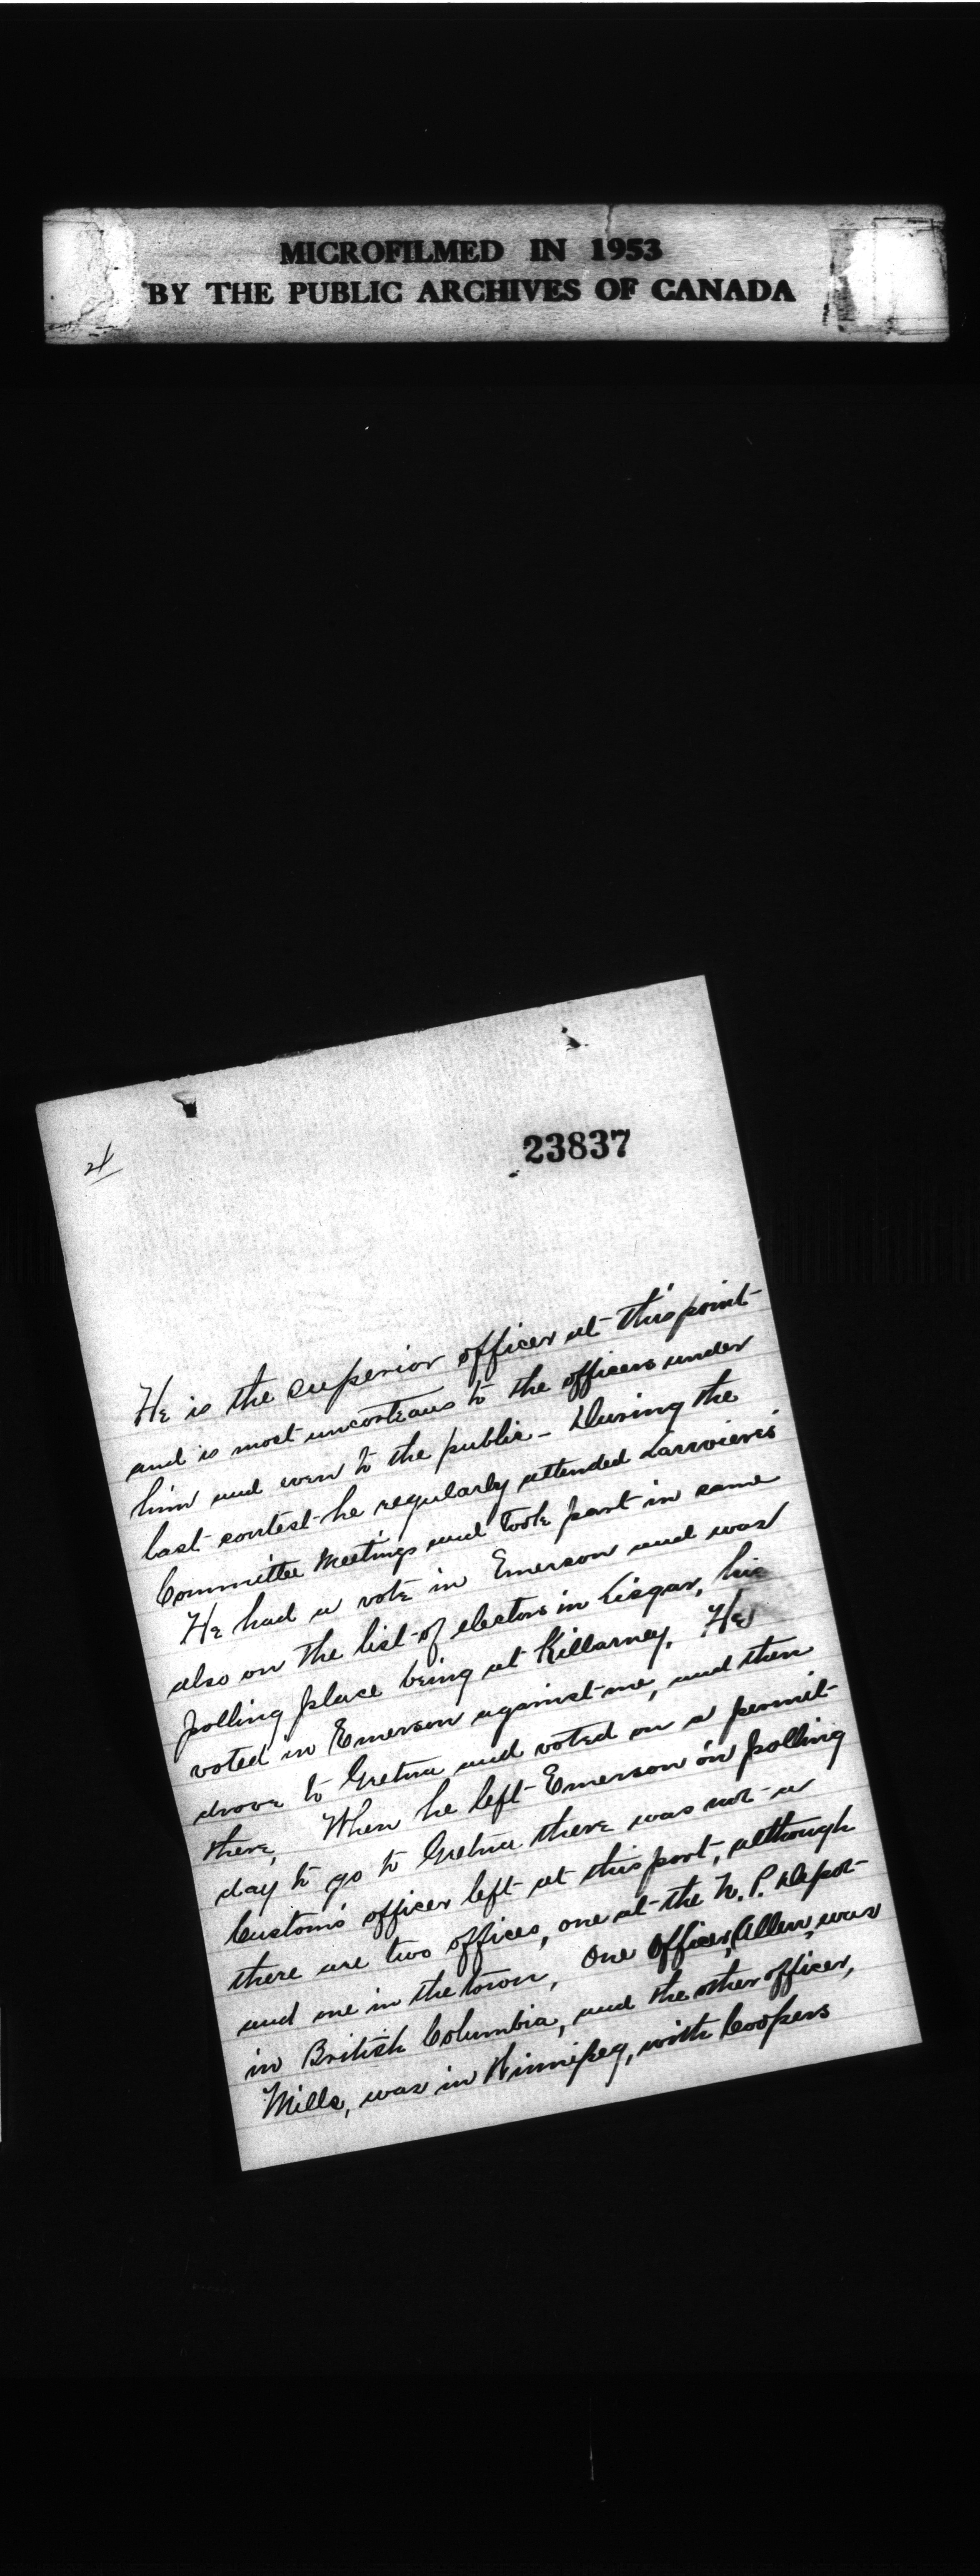 MICROFILMED IN 1953
BY THE PUBLIC ARCHIVES OF CANADA
23837
He is the superior officer at this point
and is most uncorteaus to the officers under
him and even to the public - During the
last contest he regularly attended Larrivieres
Committee Meetings and took part in same
He had a vote in Emerson and was
also on the list of electors in Lisgar, his
polling place being at Killarney. He
voted in Emerson against me, and then
drove to Gretna and voted on a permit
there, When he left Emerson on polling
day to go to Gretna there was not a
Customs officer left at this port, although
there are two offices, one at the N.P. Depot
and one in the town, One Officer, Allen, was
in British Columbia, and the other officer,
Mills, was in Winnipeg, with Coopers